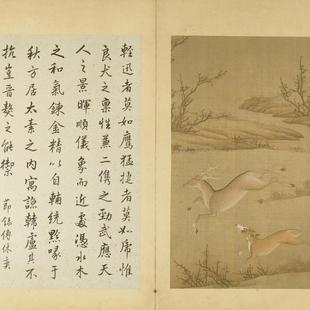 輕迅者莫如鷹猛捷者莫如虎惟
良犬之稟性兼二儁之勁武應天
人之景暉順儀象而近處憑水木
之和氣鍊金精以自輔統黔喙于
秋方居太素之內寓諒韓盧其不
抗豈晉獒之能禦 節錄傅休奕